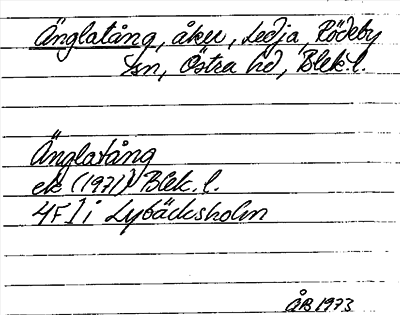 Änglatång, åker, Ledja, Rödeby
sn, Östra hd, Blek. l.
Änglatång
ek (1971) Blek. l.
4F 1 i Lybäcksholm
ÅB 1973